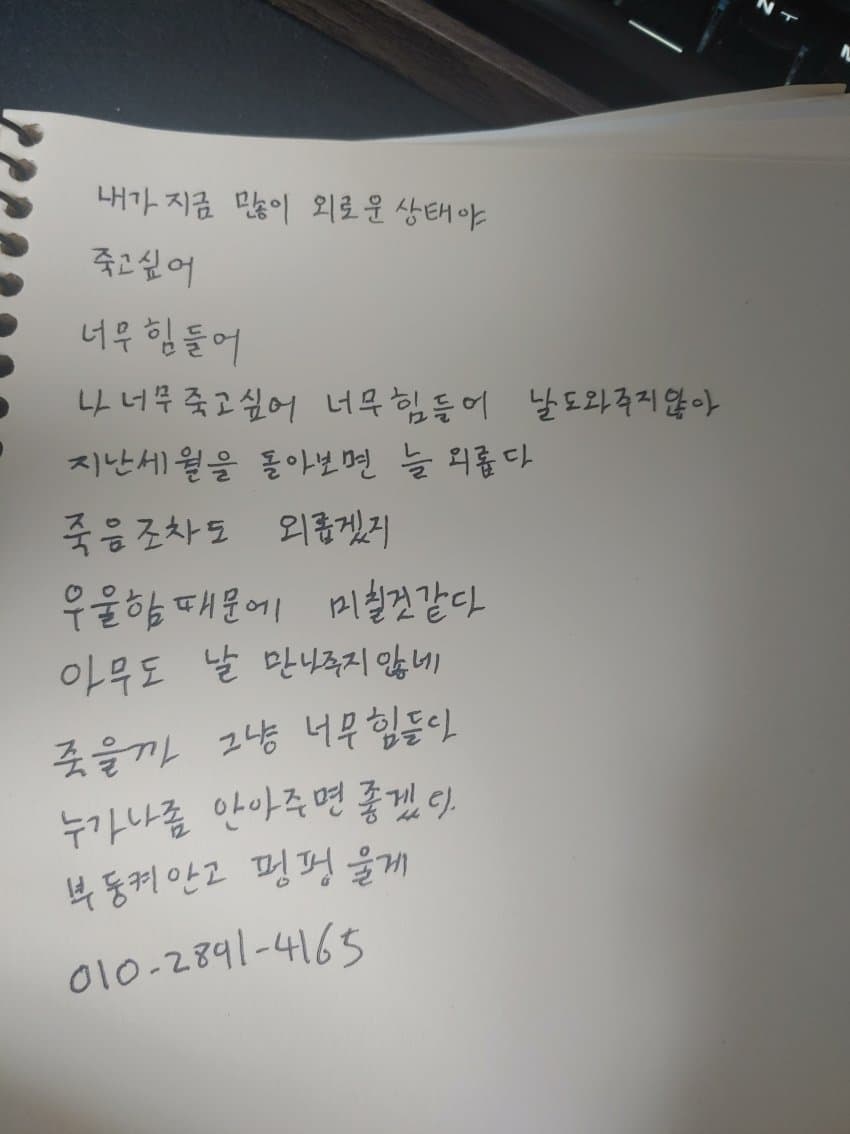 내가 지금 많이 외로운 상태야
죽고싶어
너무 힘들어
나 너무 죽고싶어 너무 힘들어 날 도와주지않아
지난세월을 돌아보면 늘 외롭다
죽음조차도 외롭겠지
우울함때문에 미칠것같다
아무도 날 만나주지않네
죽을까 그냥 너무힘들다
누가나좀 안아주면 좋겠다.
부둥켜안고 펑펑 울게
010-2891-4165